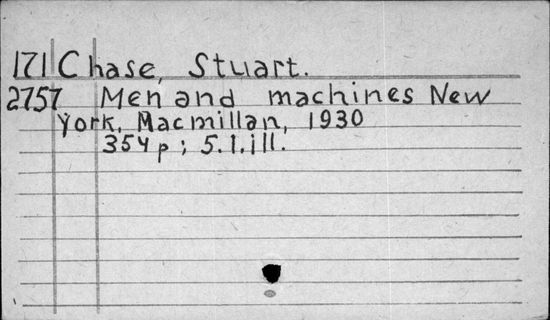 171 Chase, Stuart.
2757 Men and machines New
York, Macmillan, 1930
354 p ; 5.1.ill.